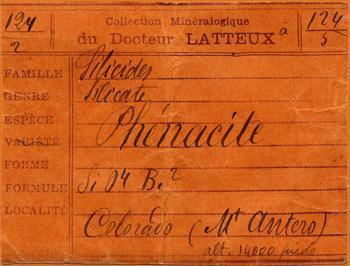 124
2
Collection Minéralogique
du Docteur LATTEUX
à
124
5
FAMILLE Silicides
GENRE Silicate
ESPÈCE Phénacite
VARIÉTÉ
FORME
FORMULE Si O4 B.2
LOCALITÉ Colorado (Mt Antero)
alt. 14000 pieds